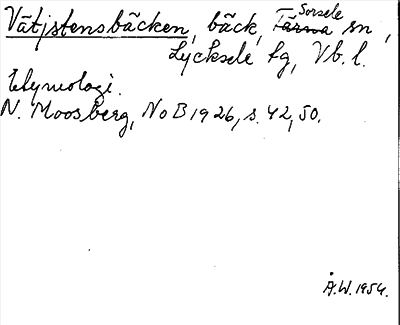 Vätjstensbäcken, bäck, Sorsele sn,
Lycksele tg, Vb. l.
Etymologi.
N. Moosberg, NoB 1926, s. 42, 50.
Å.W. 1954.